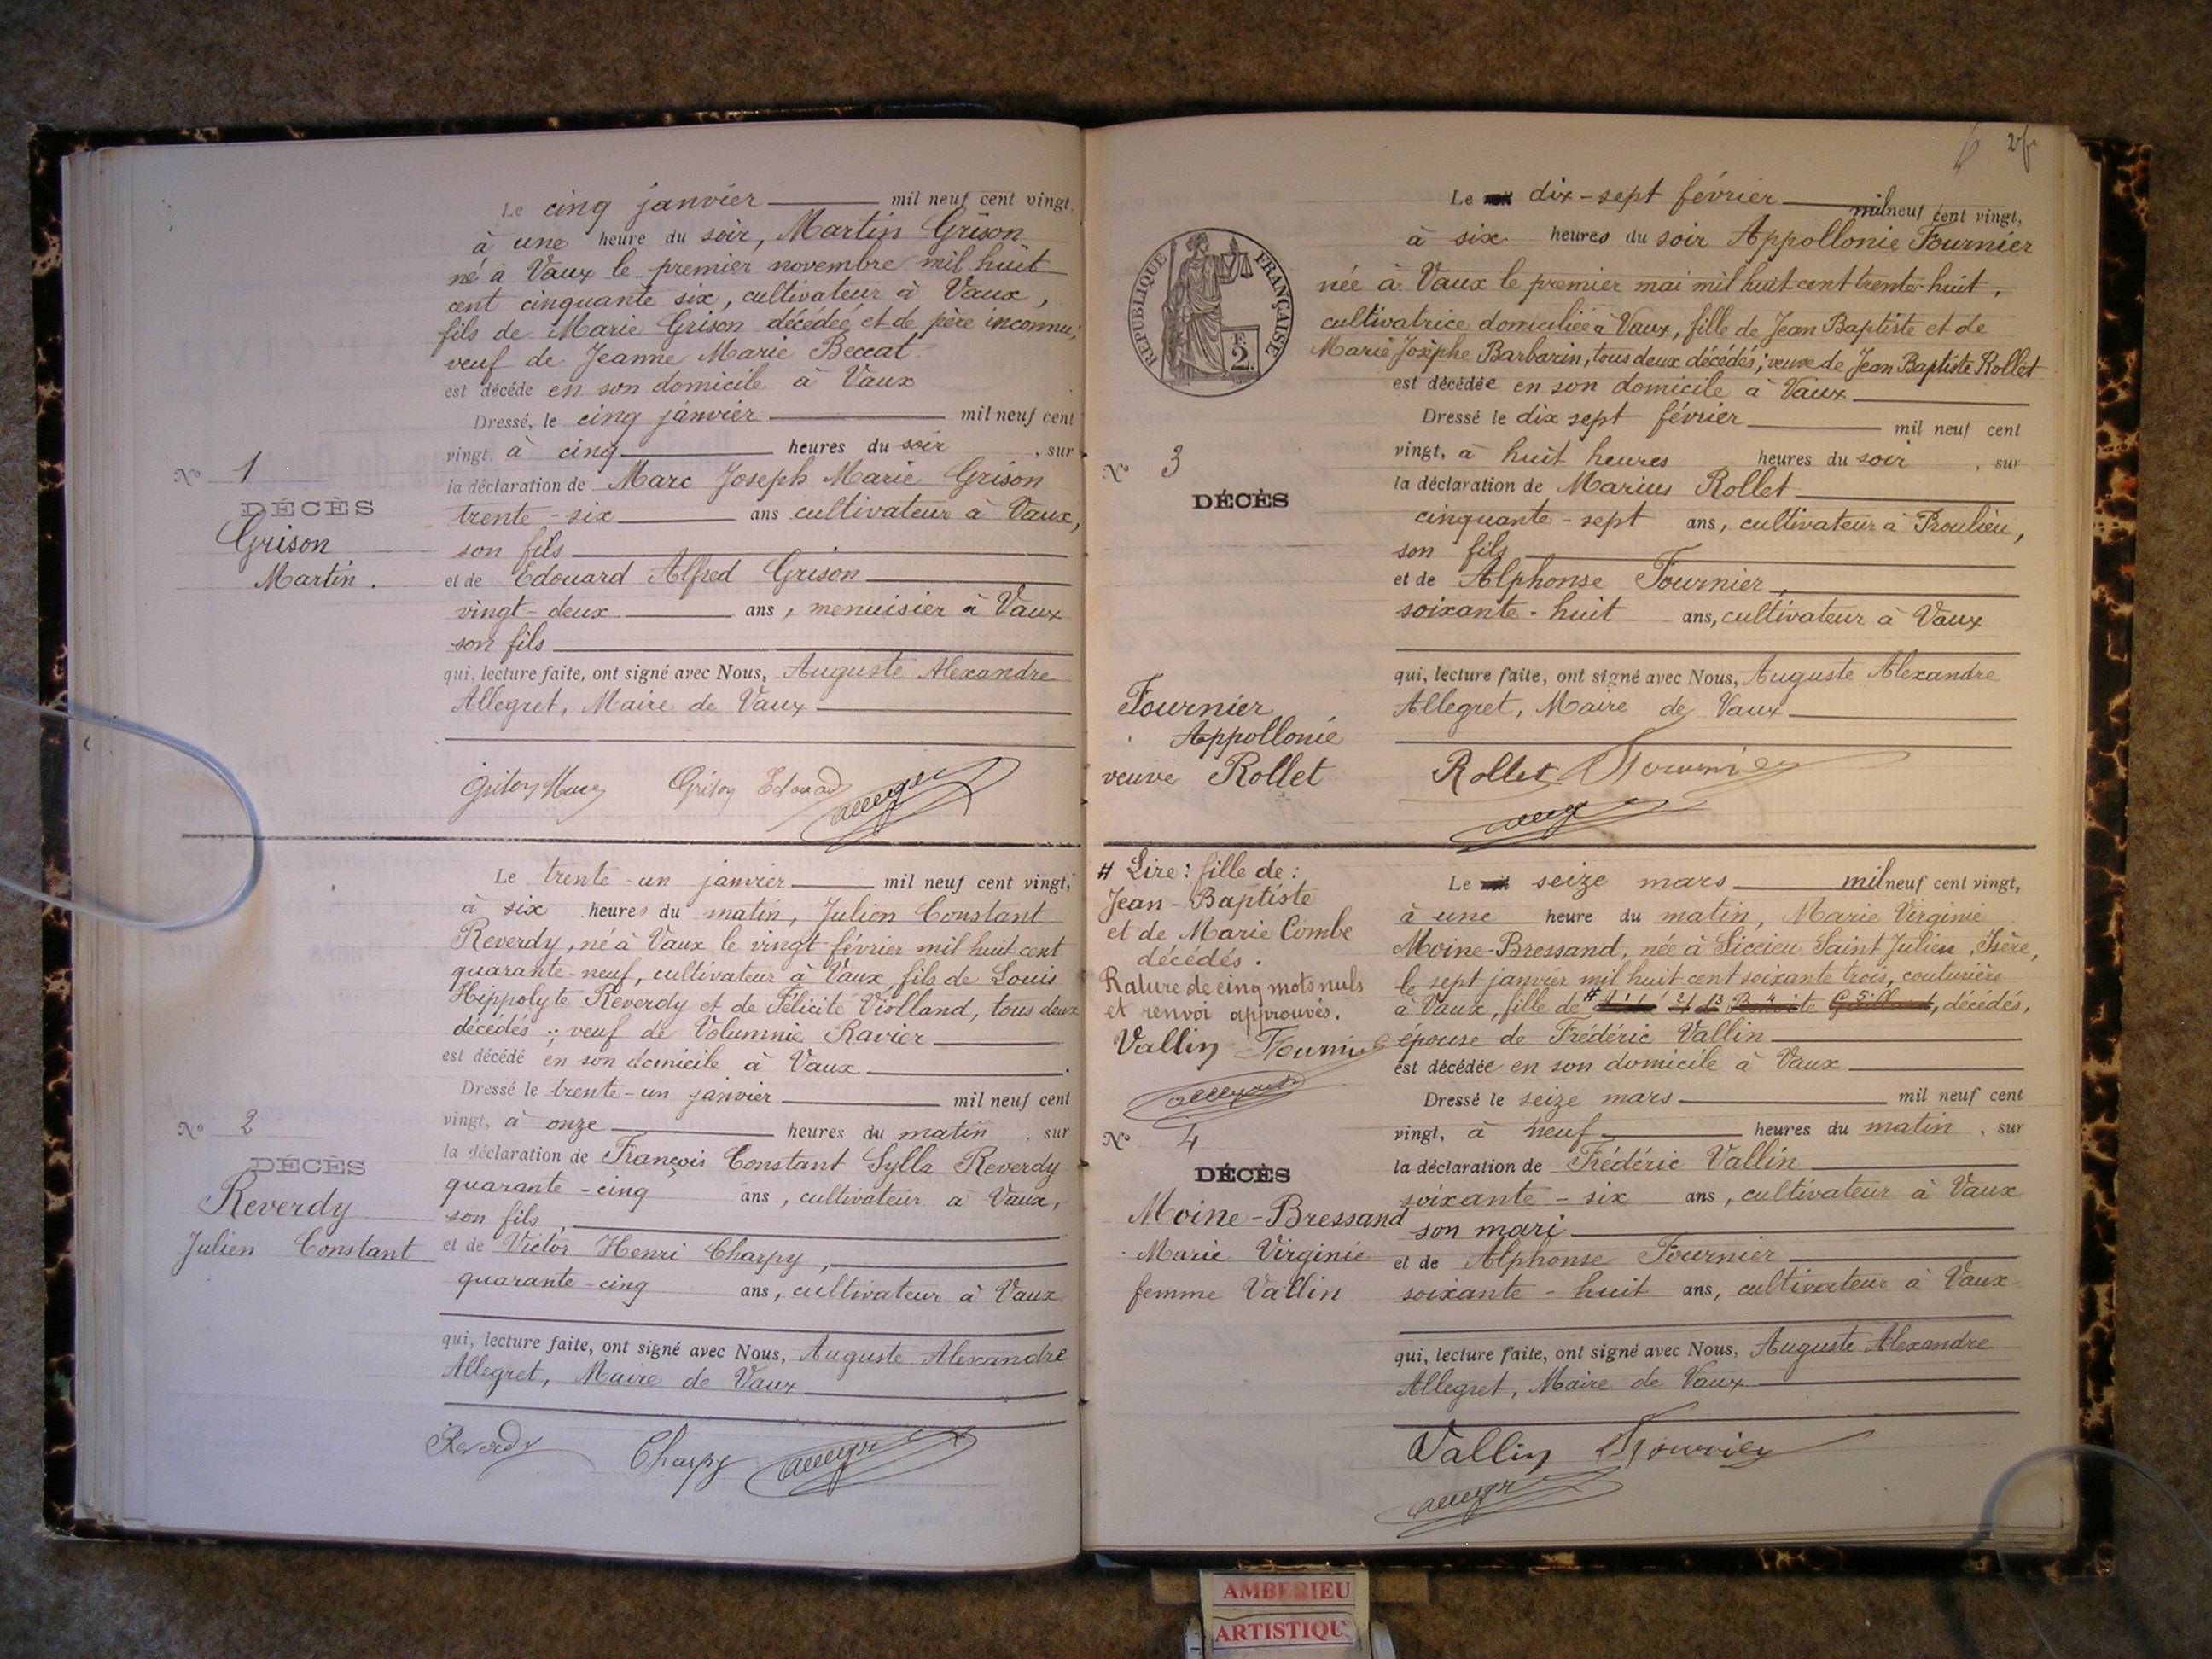 Le cinq janvier mil neuf cent vingt,
à une heure du soir, Martin Grison
né à Vaux le premier novembre mil huit
cent cinquante six, cultivateur à Vaux,
fils de Marie Grison décédée et de père inconnu;
veuf de Jeanne Marie Beccat
est décédé en son domicile à Vaux
Dressé, le cinq janvier mil neuf cent
vingt, à cinq heures du soir, sur
la déclaration de Marc Joseph Marie Grison
trente-six ans cultivateur à Vaux,
son fils
et de Edouard Alfred Grison
vingt-deux ans, menuisier à Vaux
son fils
qui, lecture faite, ont signé avec Nous, Auguste Alexandre
Allegret, Maire de Vaux
Grison Marc Grison Edouard
N° 1
DÉCÈS
Grison
Martin.
Le trente-un janvier mil neuf cent vingt,
à six heures du matin, Julien Constant
Reverdy, né à Vaux le vingt février mil huit cent
quarante-neuf, cultivateur à Vaux, fils de Louis
Hippolyte Reverdy et de Félicité Violland, tous deux
décédés; veuf de Volumnie Ravier
est décédé en son domicile à Vaux.
Dressé le trente-un janvier mil neuf cent
vingt, à onze heures du matin, sur
la déclaration de François Constant Sylla Reverdy
quarante-cinq ans, cultivateur à Vaux,
son fils,
et de Victor Henri Charpy,
quarante-cinq ans, cultivateur à Vaux
qui, lecture faite, ont signé avec Nous, Auguste Alexandre
Allegret, Maire de Vaux
Reverdy Charpy
N° 2
DÉCÈS
Reverdy
Julien Constant
Le dix-sept février mil neuf cent vingt,
à six heures du soir Appollonie Fournier
née à Vaux le premier mai mil huit cent trente-huit,
cultivatrice domiciliée à Vaux, fille de Jean Baptiste et de
Marie Josèphe Barbarin, tous deux décédés; veuve de Jean Baptiste Rollet
est décédée en son domicile à Vaux
Dressé le dix sept février mil neuf cent
vingt, à huit heures heures du soir, sur
la déclaration de Marius Rollet
cinquante-sept ans, cultivateur à Proulieu,
son fils
et de Alphonse Fournier,
soixante-huit ans, cultivateur à Vaux
qui, lecture faite, ont signé avec Nous, Auguste Alexandre
Allegret, Maire de Vaux
Rollet Fournier
REPUBLIQUE FRANÇAISE
F.
2.
N° 3
DÉCÈS
Fournier
Appollonie
veuve Rollet
Le seize mars mil neuf cent vingt,
à une heure du matin, Marie Virginie
Moine-Bressand, née à Siccieu Saint Julien, Isère,
le sept janvier mil huit cent soixante trois, couturière
à Vaux, fille de # décédés,
épouse de Frédéric Vallin
est décédée en son domicile à Vaux
Dressé le seize mars mil neuf cent
vingt, à neuf heures du matin, sur
la déclaration de Frédéric Vallin
soixante-six ans, cultivateur à Vaux
son mari
et de Alphonse Fournier
soixante-huit ans, cultivateur à Vaux
qui, lecture faite, ont signé avec Nous, Auguste Alexandre
Allegret, Maire de Vaux
Vallin Fournier
# Lire: fille de:
Jean-Baptiste
et de Marie Combe
décédés.
Rature de cinq mots nuls
et renvoi approuvés.
Vallin Fournier
N° 4
DÉCÈS
Moine-Bressand
Marie Virginie
femme Vallin
AMBERIEU
ARTISTIQU